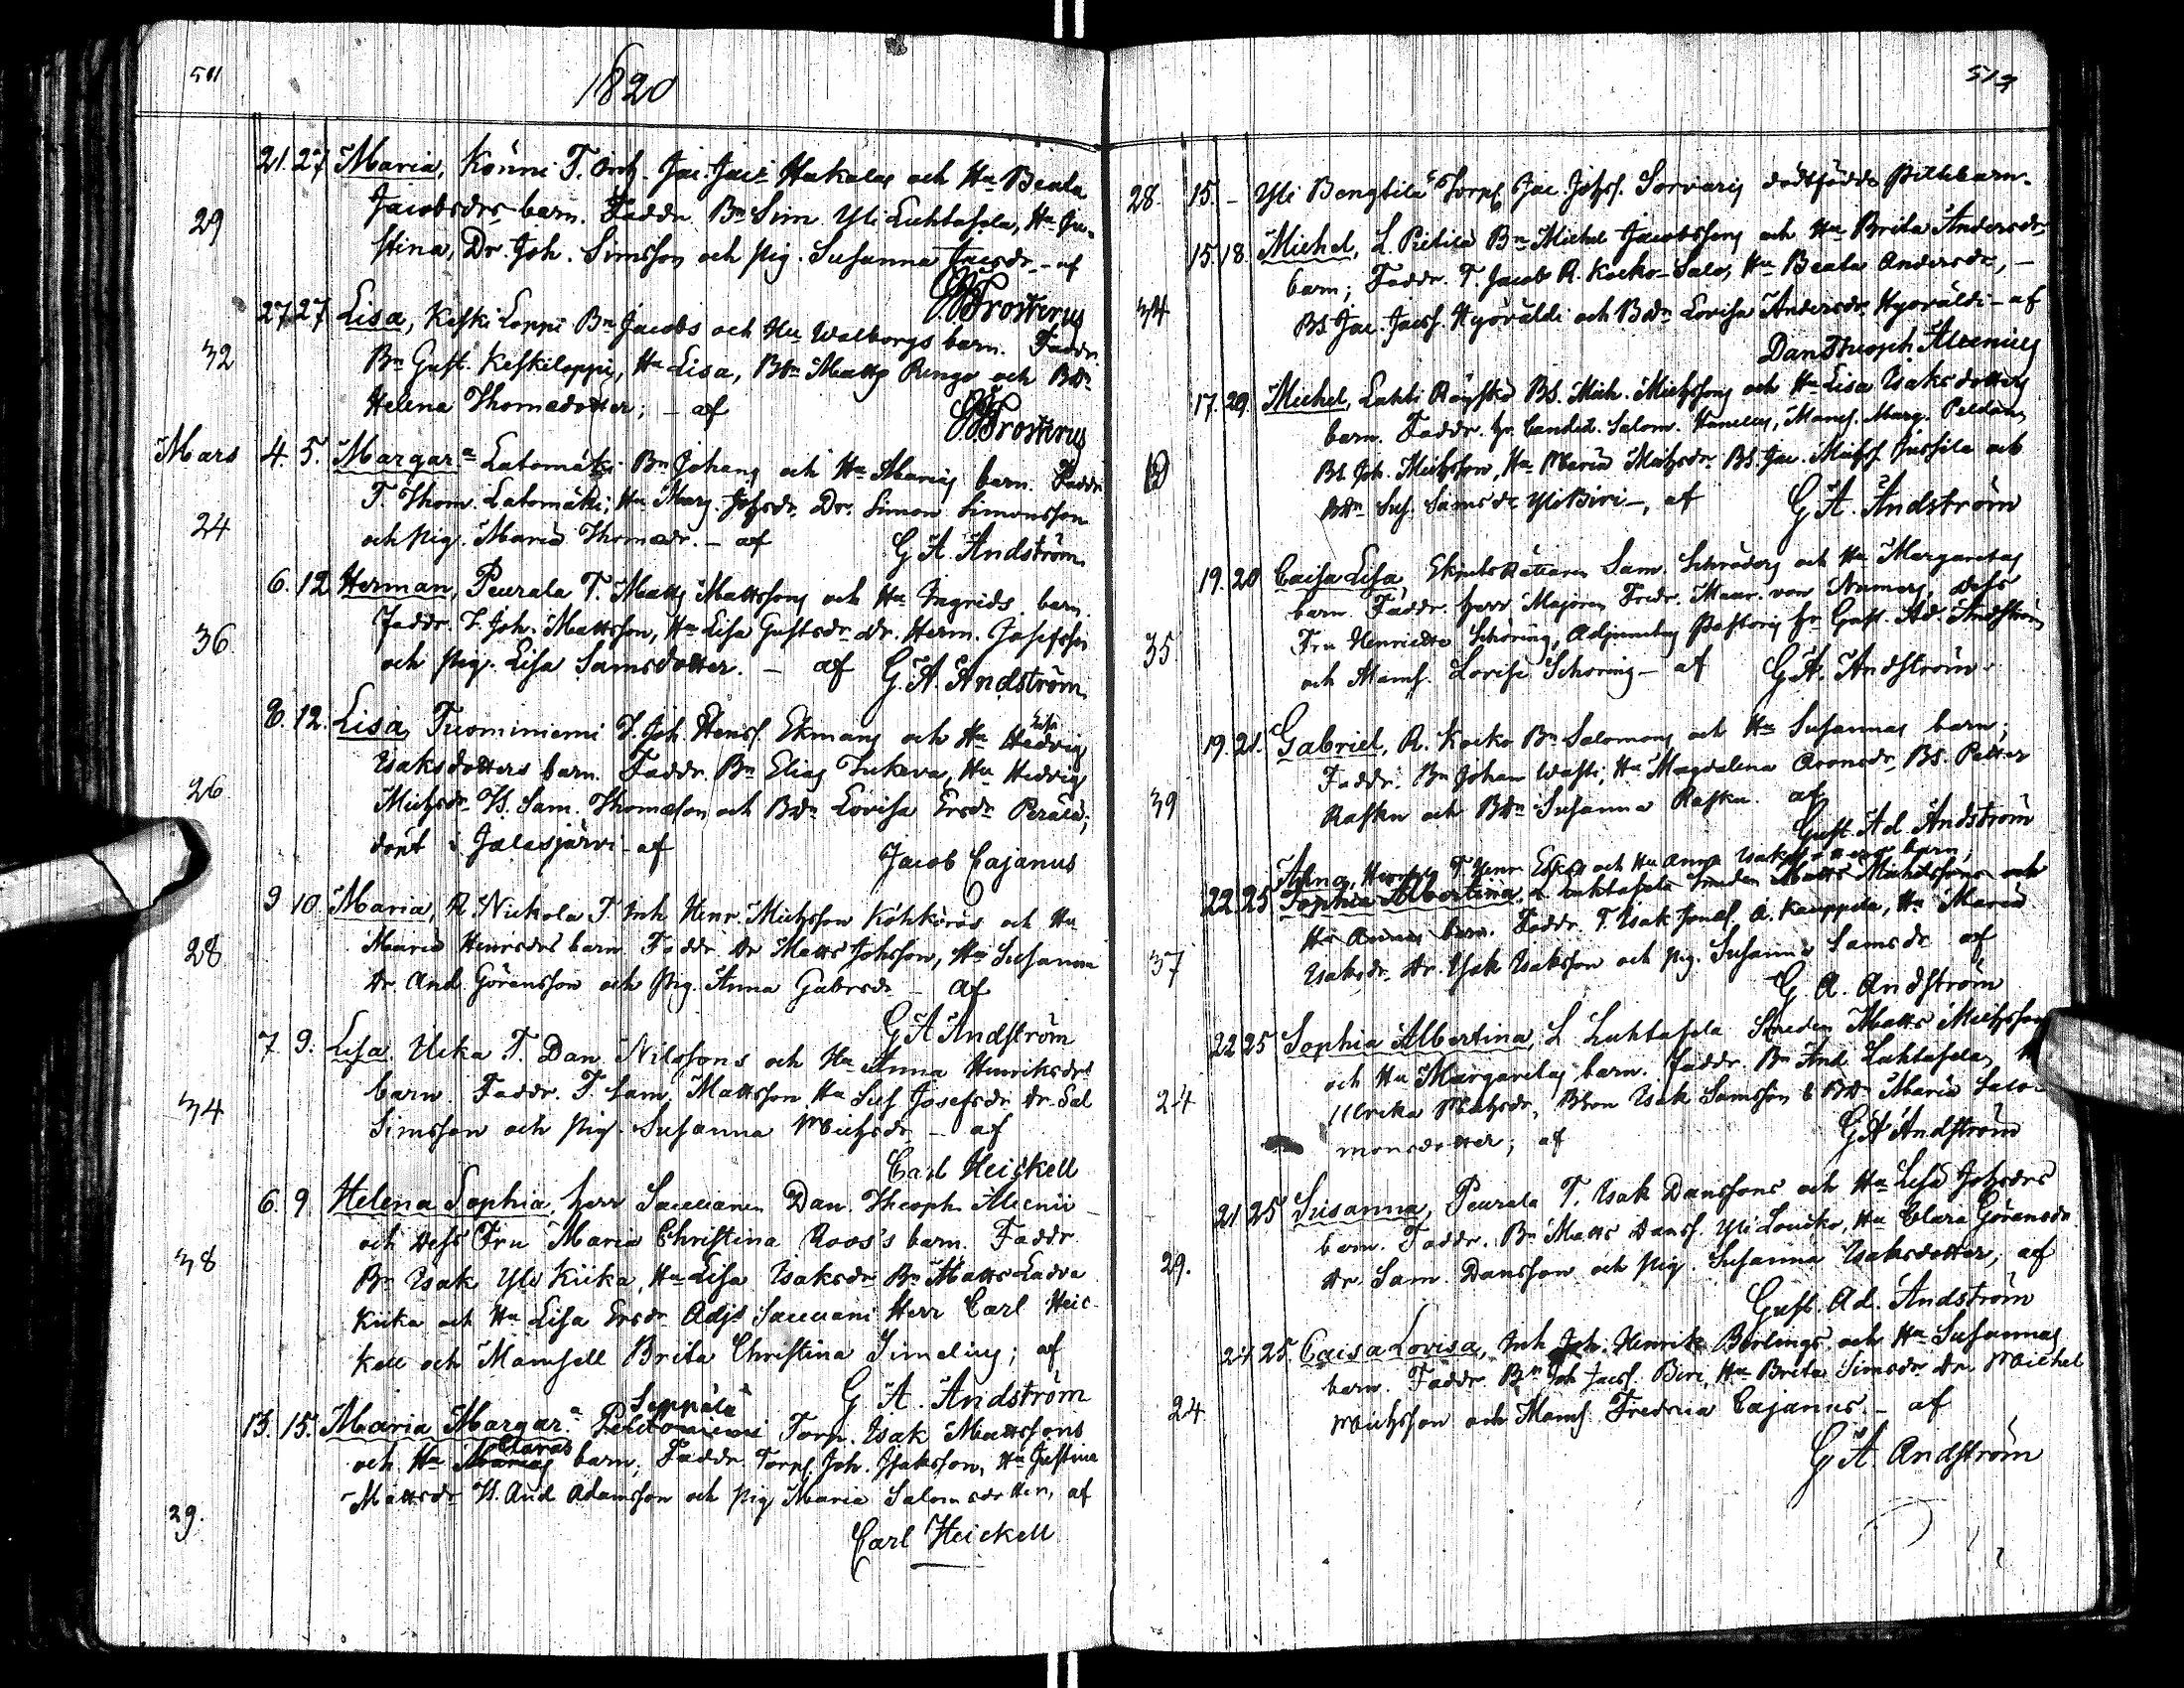 511
1820
21. 27 Maria, Könni T. Inh. Jac. Jacs Hakalas och Hu Beata
29 Jacobsdrs barn. Faddr. Bn Sim. Yli Luhtasela, Hu Ju-
stina, Dr. Joh. Simsson och pig. Susanna Jacsdr - af
Frosterus
27 27 Lisa, Keski Loppi Bn Jacobs och Hu Walborgs barn. Faddr.
32 Bn Gust. Keskiloppi, Hu Lisa, Bdn Matts Rengo och Bdr
Helena Thomædotter; - af
Frosterus
Mars 4. 5. Margar.a Latomäki Bn Johans och Hu Marias barn. Faddr
T. Thom. Latomäki, Hu Marg. Johsdr, Dr. Simon Simonsson
24 och pig. Maria Thomædr. - af G A Andström
6. 12 Herman, Peurala T. Matts Mattssons och Hu Ingrids barn
36 Faddr. T. Joh. Mattsson, Hu Lisa Gustsdr dr. Herm. Josefsson
och pig. Lisa Samsdotter. - af G. A. Andström
8. 12. Lisa, Tuominiemi T. Joh. Henrs. Ekmans och Hu Hedvig
26 Isaksdotters barn. Faddr. Bn Elias Jukava, Hu Hedvig
Michsdr Bs. Sam. Thomæson och Bdr Lovisa Ersdr Perälä;
döpt i Jalasjärvi - af Jacob Cajanus
9 10. Maria, R. Nickola T. Inh. Henr. Michsson Köhkörös och Hu
28 Maria Henrsdrs barn Faddr. dr Matts Johsson, Hu Susanna
dr. And. Göransson och Pig. Anna Gabrsdr - af
G A Andström
7 9. Lisa. Ucka T. Dan. Nilssons och Hu Anna Henriksdrs
34 barn. Faddr. T. Sam. Mattsson, Hu Sus. Josefsdr dr. Sal
Simsson och pig. Susanna Michsdr - af
Carl Heickell
6. 9. Helena Sophia, herr Sacellanen Dan. Theoph. Alcenii
och dess Fru Maria Christina Roos's barn. Faddr.
38 Bn Isak Yli Kiika, Hu Lisa Isaksdr Bn Matts Ladva
Kiika och Hu Lisa Ersdr Adjt Sacellani Herr Carl Heic-
kell och Mamsell Brita Christina Simelius; af
G A. Andström
Seppälä
13. 15. Maria Margar.a Torp. Isak Mattssons
Claras
och Hu Marias barn. Faddr. Torp. Joh. Isaksson, Hu Justina
29. Mattsdr Bs. And. Adamsson och pig Maria Salomsdotter, af
Carl Heickell
28. 15. - Yli Bengtilä Torp. Jac. Johss. Sorvaris dödfödde Piltebarn.
15. 18. Michel, L. Pietilä Bn Michel Jacobssons och Hu Brita Andersdr
barn; Faddr. T. Jacob R. Kocko-Salo, Hu Beata Andersdr, -
34 Bs. Jac. Jacss. Hyöväldi och Bdn Lovisa Andersdr Hyöväldi - af
Dan Theoph Alcenius
17. 20. Michel, Lahti Röyskö Bs. Mich. Michssons och Hu Lisa Isaksdotters
barn. Faddr. hr Candid. Salom. Hanelles, Mams. Marg. Peldan,
Bs. Joh. Michsson, Hu Maria Michsdr Bs. Jac. Michss. Jussila och
Bdn Sus. Samsdr Yli Biri -, af G A. Andström
19. 20 Caisa Lisa, Sam. Schröders och Hu Margaretas
barn. Faddr. herr Majoren Fredr. Maur. von Numers, dess
35 Fru Henriette Schöring, Adjunctus Pastoris hr Gust. Ad. Andström
och Mams. Lovise Schöring - af G A. Andström
19. 21. Gabriel, R. Kocko Bn Salomons och Hu Susannas barn;
39 Faddr. Bn Johan Wasti, Hu Magdalena Aronsdr, Bs. Petter
Rasku och Bdn Susanna Rasku. af
Gust. Ad. Andström
Anna, T. Henr. och Hu Anna Isaksdotters barn;
22 25 Sophia Albertina, L Luhtasela Smeden Matts Michelssons och
Hu Annas barn. Faddr. T. Isak Jonæs. A. Kauppila, Hu Maria
37 Isaksdr, dr. Isak Isaksson och pig. Susanna Samsdr af
G. A. Andström
22 25 Sophia Albertina, L Luhtasela Smeden Matts Michsson
24 och Hu Margaretas barn. Faddr. Bn And. Luhtasela,
Ulrika Mattsdr, Bdn Isak Samsson & Bdr Maria Salo-
monsdotter; af G A Andström
21 25 Susanna, Peurala T. Isak Danssons och Hu Lisa Johsdrs
29. barn. Faddr. Bn Matts Danss. Yli Loucko, Hu Clara Göransdr
dr. Sam. Dansson och pig. Susanna Isaksdotter, af
Gust. Ad. Andström
24 25. Caisa Lovisa, Inh. Joh. Henrik Berlings och Hu Susannas
24 barn. Faddr. Bn Joh Jacss. Biri, Hu Brita Simsdr dr. Michel
Michsson och Mams. Fredrica Cajanus. - af
G A. Andström